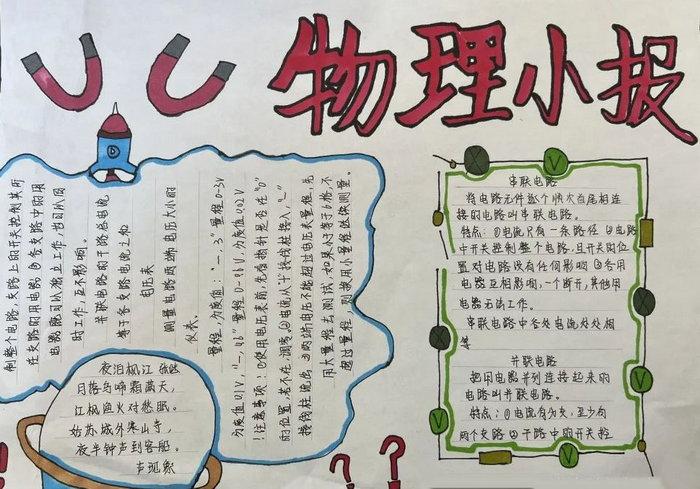 物理小报
串联电路
将电路元件逐个顺次首尾相连
接的电路叫串联电路。
特点：①电流只有一条路径 ②电路
中开关控制整个电路，且开关的位
置对电路没有任何影响 ③各用
电器互相影响，一个断开，其他用
电器无法工作。
串联电路中各处电流处处相
等
并联电路
把用电器并列连接起来的
电路叫并联电路。
特点：①电流有分支，至少有
两个支路 ②干路中的开关控
制整个电路，支路上的开关控制其所
在支路的用电器 ③各支路中的用
电器既可以独立工作，也可以同
时工作，互不影响。
并联电路的干路总电流
等于各支路电流之和
电压表
测量电路两端电压大小的
仪表。
量程，分度值："－，3" 量程 0-3V
分度值0.1V，"－，15" 量程 0-15V，分度值0.5V
注意事项：①使用电压表前，先看指针是否在"0"
的位置，若不在，调零 ②电流从"+"接线柱接入，"－"
接线柱流出 ③两端电压不能超过电压表量程，先
用大量程去测试，如果小于等于6格，不
超过量程，则换用小量程继续测量。
夜泊枫江 张继
月落乌啼霜满天，
江枫渔火对愁眠。
姑苏城外寒山寺，
夜半钟声到客船。
声现象